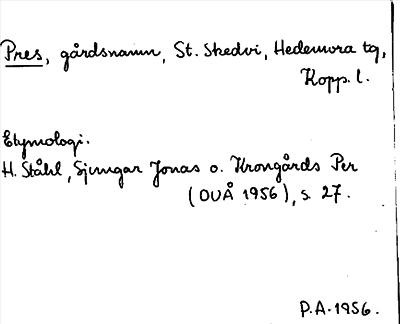 Pres, gårdsnamn, St. Skedvi, Hedemora tg,
Kopp. l.
Etymologi.
H. Ståhl, Sjungar Jonas o. Krongårds Per
(DUÅ 1956), s. 27.
P.A. 1956.